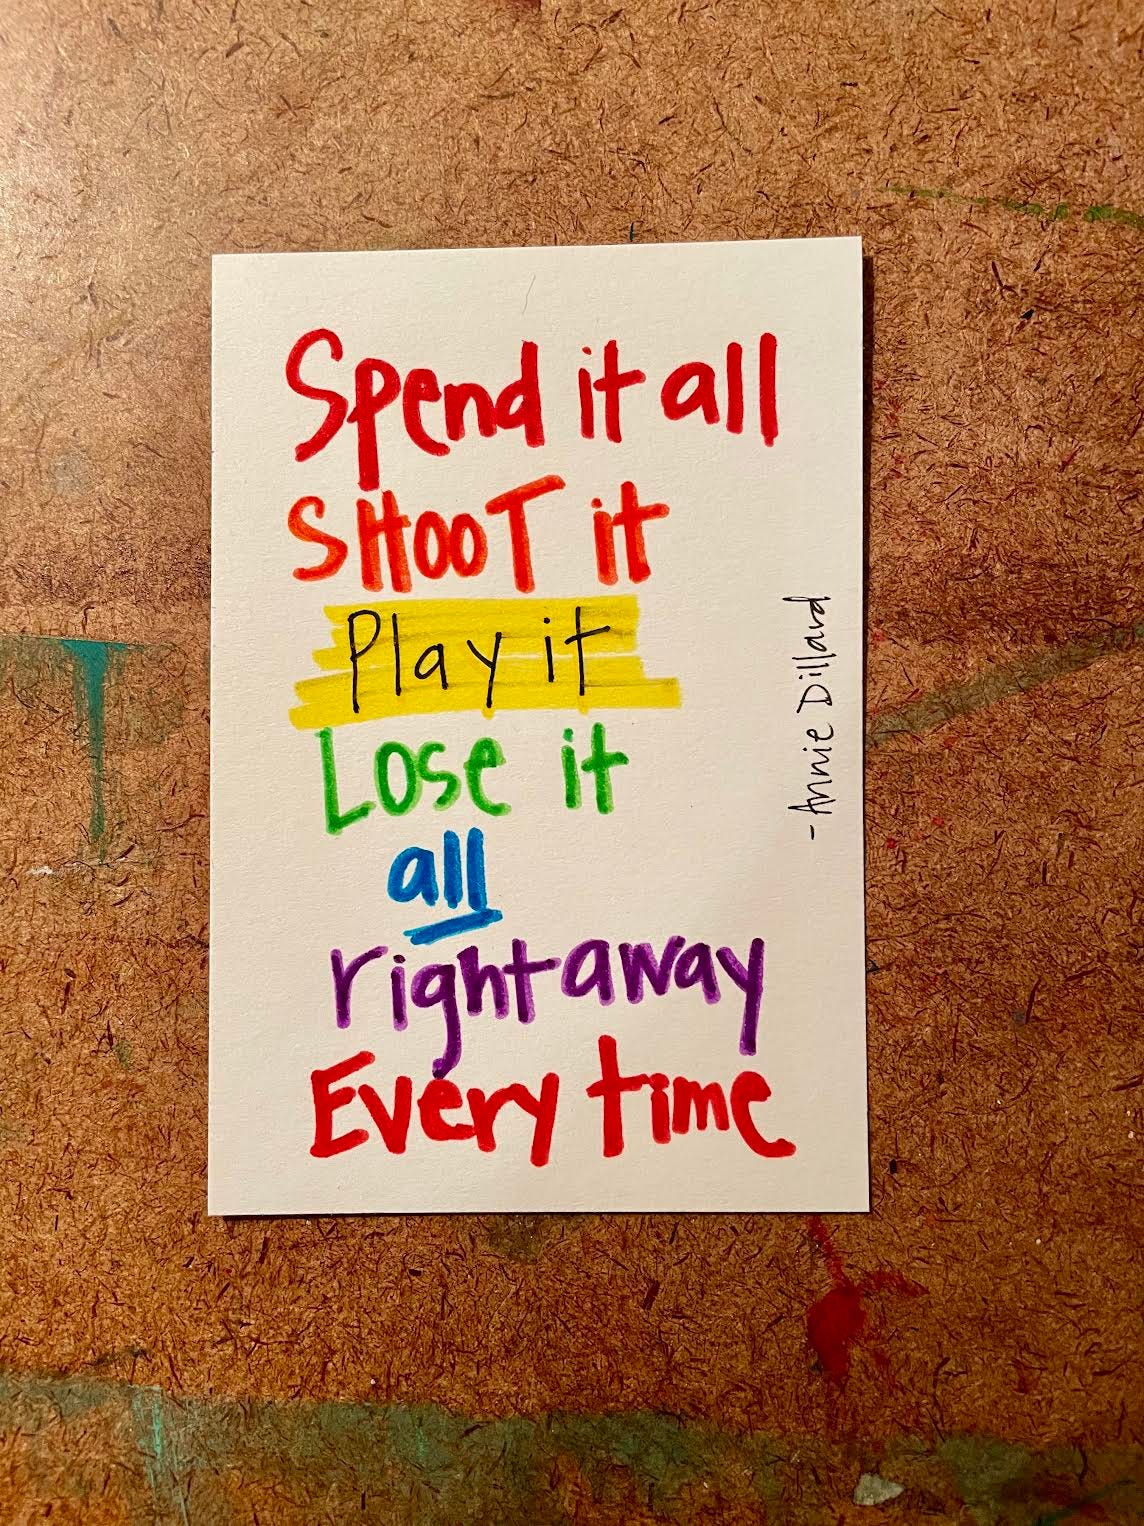 Spend it all
SHOOT it
Play it
Lose it
all
right away
Every time
- Annie Dillard